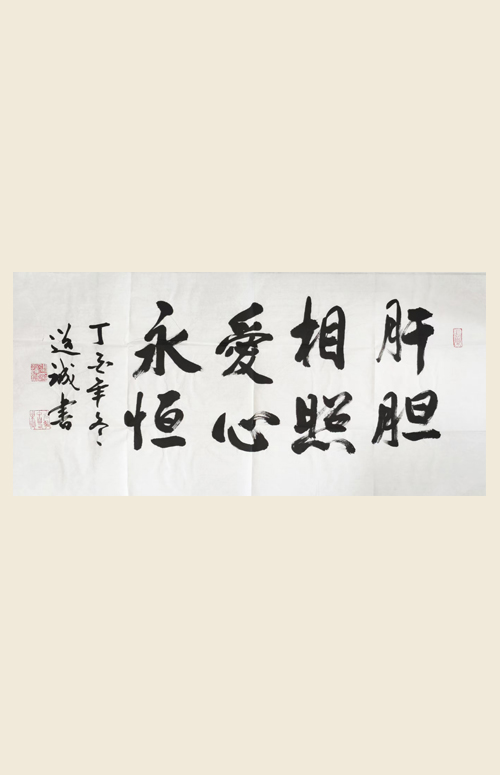 肝胆
相照
愛心
永恒
丁亥年冬
道诚書